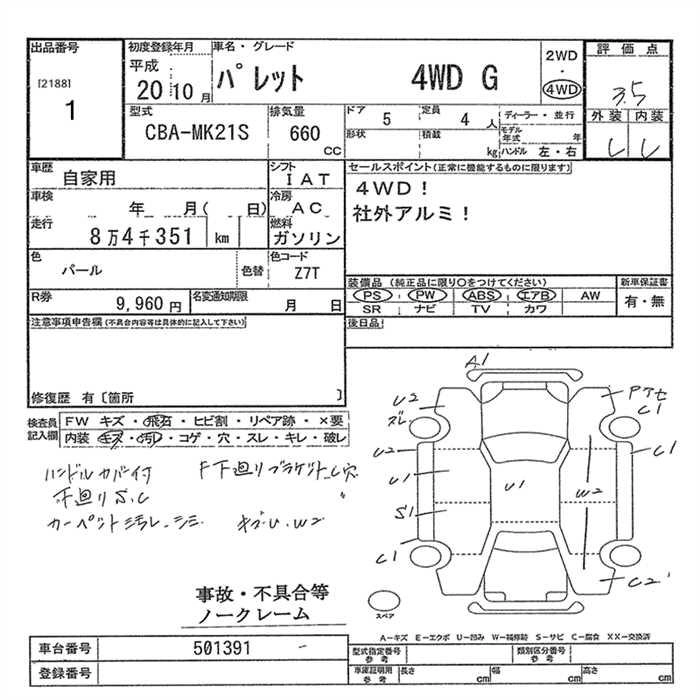 出品番号 初度登録年月 車名・グレード 2WD 評価点
[2188] 平成 パレット 4WD G ・ 3.5
1 20 10月 4WD 外装 内装
型式 排気量 ドア 5 定員 4人 ディーラー・並行
CBA-MK21S 660 CC 形状 積載 kg モデル年式 年
ハンドル 左・右
車歴 自家用 シフト IAT セールスポイント(正常に機能するものに限ります)
車検 年 月( 日) 冷房 AC 4WD!
走行 8万4千351 km 燃料 ガソリン 社外アルミ!
色 パール 色替 色コード Z7T
装備品(純正品に限り○をつけてください) 新車保証書
R券 9,960円 名変通知期限 月 日 PS PW ABS エアB AW 有・無
SR ナビ TV カワ
注意事項申告欄(不具合内容等は具体的に記入して下さい) 後日品
修復歴 有〔箇所 〕
検査員記入欄 FW キズ・飛石・ヒビ割・リペア跡・×要
内装 キズ・汚レ・コゲ・穴・スレ・キレ・破レ
ハンドルカバー付 F下廻りブラケットC穴
下廻りS.C
カーペット汚レ.シミ キズU.W2
A1
U2
ズレ
C1
U2 C1
U1 U1 W2
S1
C1
C2
スペア
事故・不具合等
ノークレーム
A-キズ E-エクボ U-凹み W-補修跡 S-サビ C-腐食 XX-交換済
車台番号 501391 型式指定番号 参考 類別区分番号 参考
登録番号 車庫証明用 参考 長さ cm 幅 cm 高さ cm